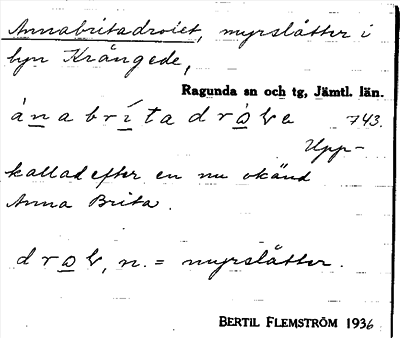 Annabritadroiet, myrslåtter i
byn Krångede,
Ragunda sn och tg, Jämtl. län.
ánabrítadròve 743.
Upp-
kallad efter en nu okänd
Anna Brita.
drov, n. = myrslåtter.
BERTIL FLEMSTRÖM 1936